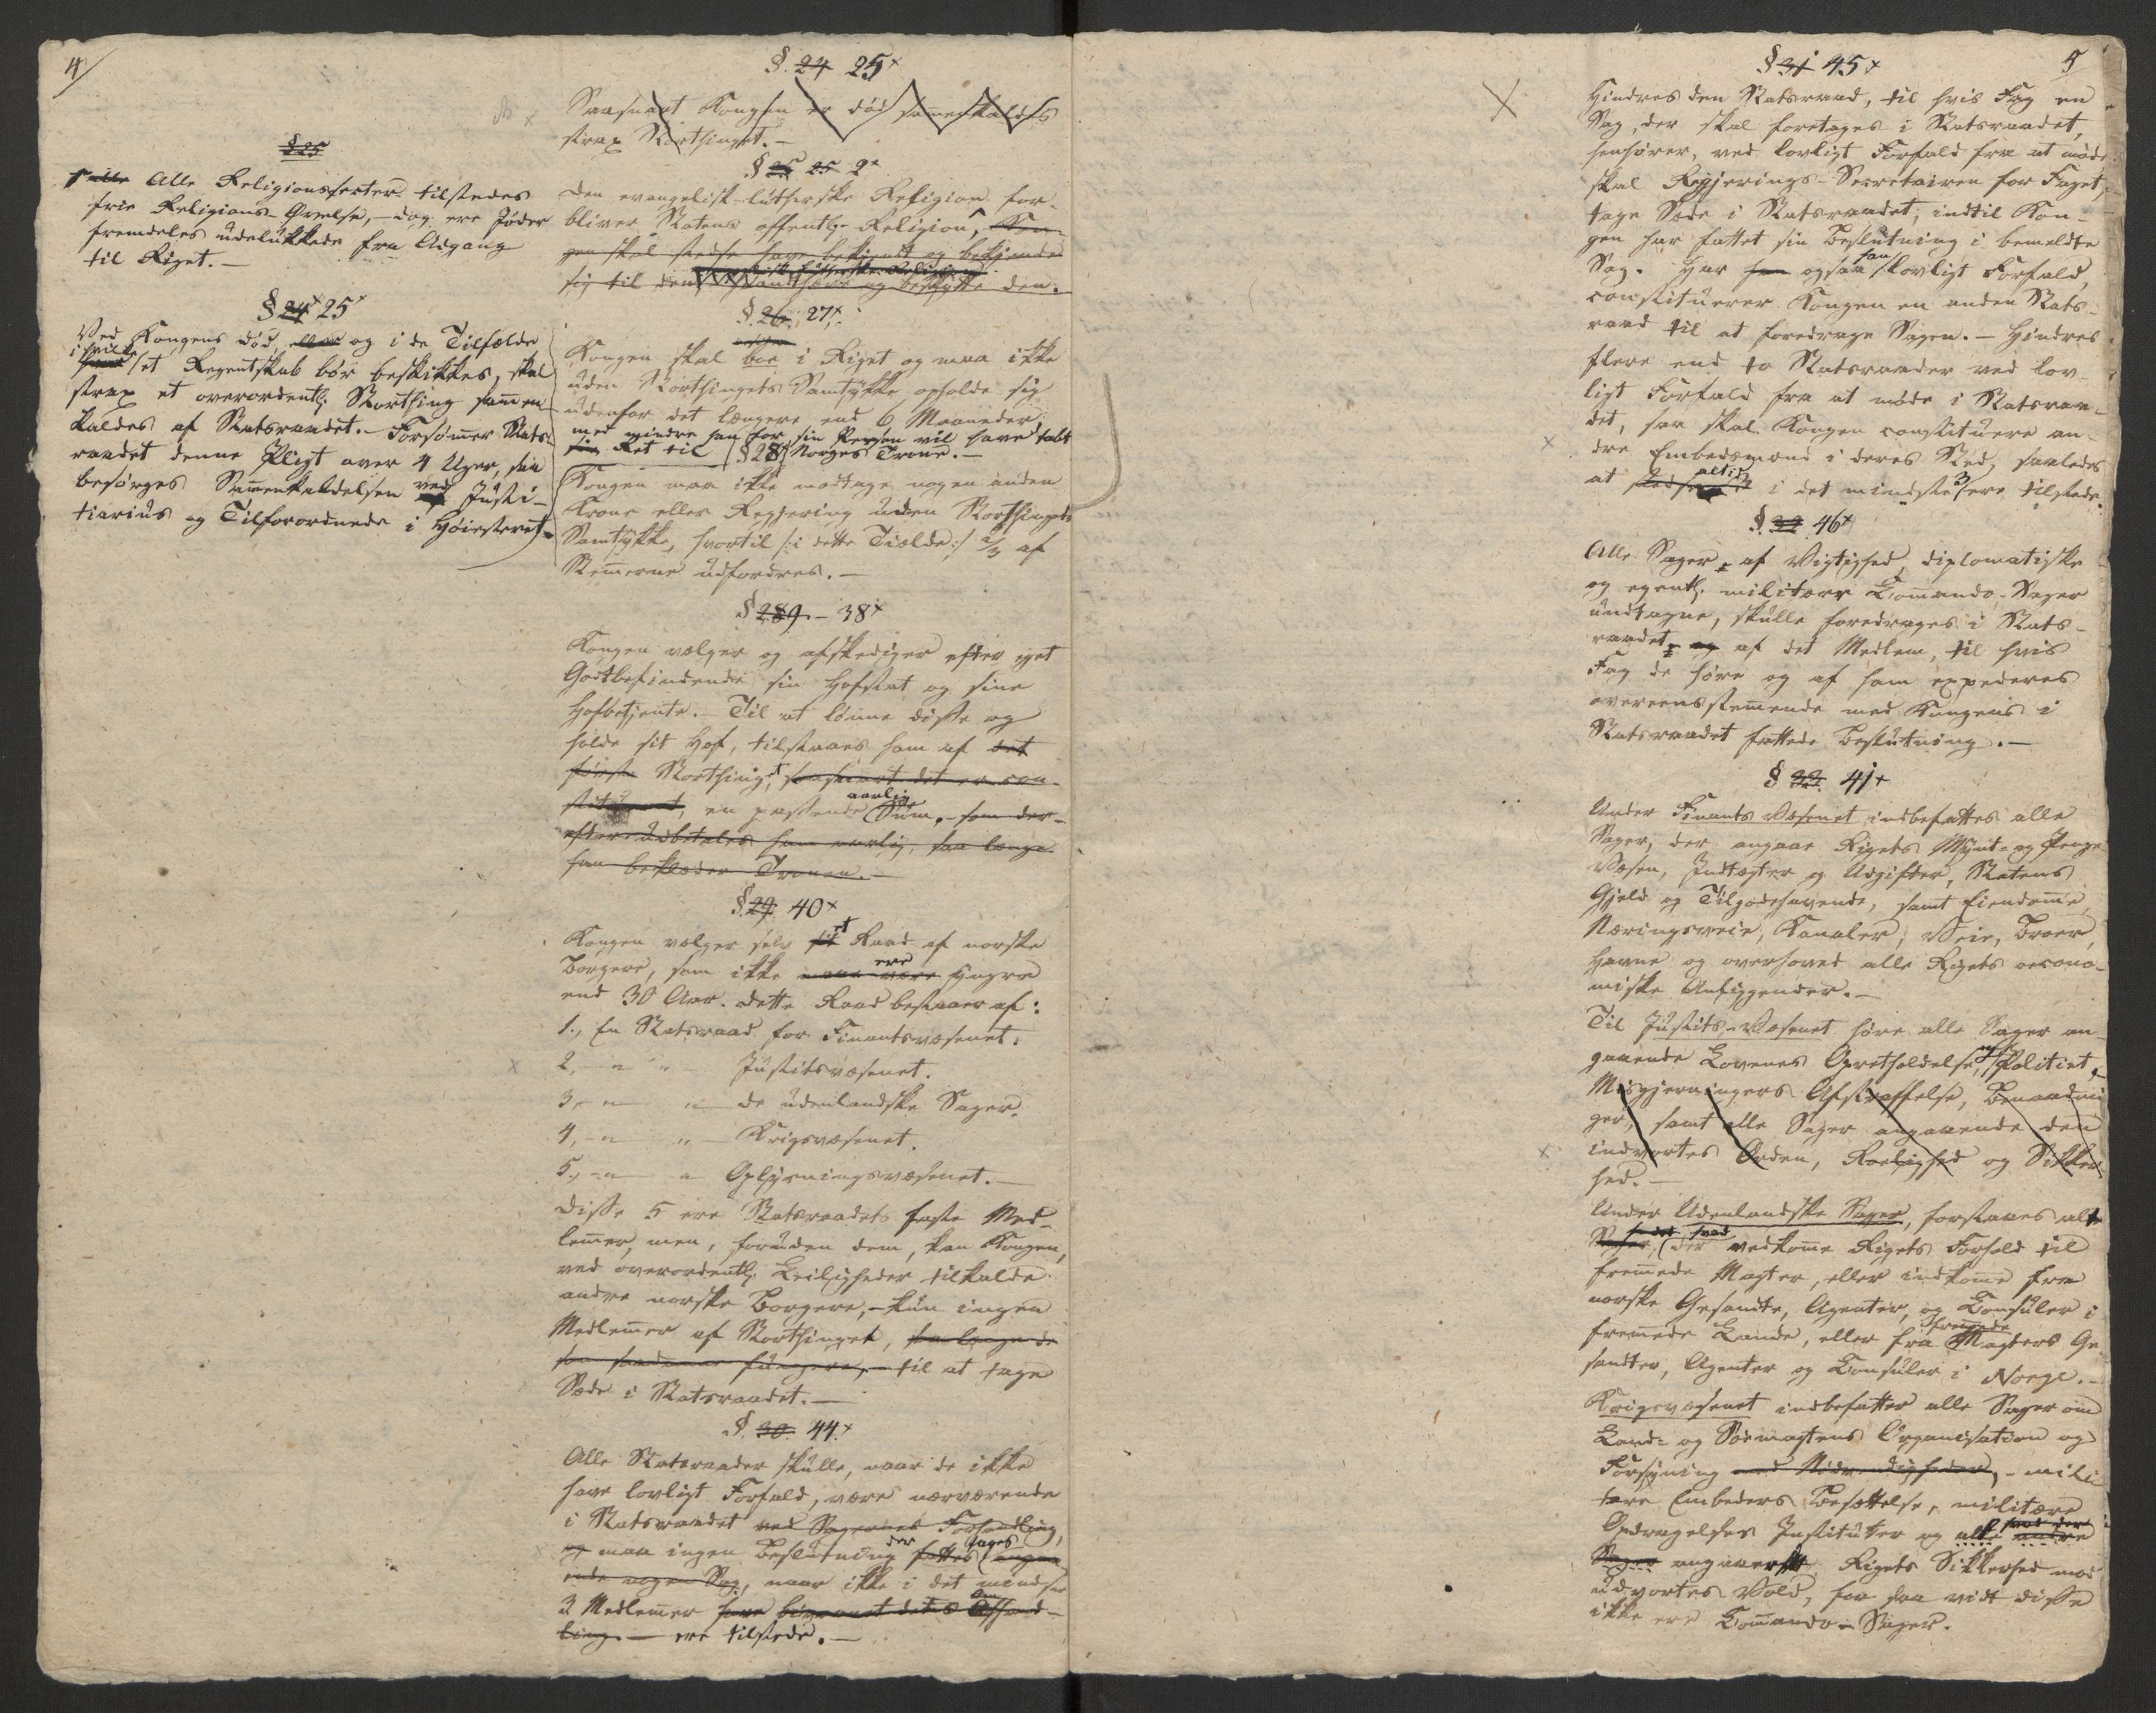 4/
§25
Alle Religionssecter tilstedes
frie Religions-Øvelse, – dog ere Jøder
fremdeles udelukkede fra Adgang
til Riget. –
§ 24 25
Ved Kongens Død, eller og i de Tilfælde
i hvilke et Regentskab bør beskikkes, skal
strax et overordentl: Storthing sammen-
kaldes af Statsraadet. – Forsømmer Stats-
raadet denne Pligt over 4 Uger, saa
besørges Sammenkaldelsen ved Justi-
tiarius og Tilforordnede i Høiesteret. –
§. 24 25 x
Saasnart Kongen er død sammenkaldes
strax Storthinget. –
§ 25 2 x
Den evangelisk-lutherske Religion for-
bliver Statens offentl: Religion, Kon-
gen skal stedse have bekjendt og bekjende
sig til den haandhæve og beskytte den.
§. 26. 27 x
Kongen skal boe i Riget og maa ikke
uden Storthingets Samtykke opholde sig
udenfor det længere end 6 Maaneder
med mindre han for sin Person vil have tabt
sin Ret til § 28 Norges Trone. –
Kongen maa ikke modtage nogen anden
Krone eller Regjering uden Storthingets
Samtykke, hvortil /: i dette Tilælde :/ 2/3 af
Stemmerne udfordres. –
§ 289 – 38 x
Kongen vælger og afskediger efter eget
Godtbefindende sin Hofstat og sine
Hofbetjente. – Til at lønne disse og
holde sit Hof, tilstaaes ham af det
første Storthinget, saasnart det er con-
stitueret, en passende aarlig Sum, – som der-
efter udbetales ham aarlig, saa længe
han beklæder Tronen. –
§. 29. 40 x
Kongen vælger selv sit et Raad af norske
Borgere, som ikke maa være ere yngre
end 30 Aar. Dette Raad bestaaer af:
1., En Statsraad for Finantsvæsenet.
2, – " " – Justitsvæsenet.
3, – " " – de udenlandske Sager.
4, – " " – Krigsvæsenet.
5., – " " Oplysningsvæsenet. –
Disse 5 ere Statsraadets faste Med-
lemmer, men, foruden dem, kan Kongen,
ved overordentl: Leiligheder tilkalde
andre norske Borgere, – kun ingen
Medlemmer af Storthinget, saalænge de
som saadanne fungere, – til at tage
Sæde i Statsraadet. –
§. 30. 44. x
Alle Statsraader skulle, naar de ikke
have lovligt Forfald, være nærværende
i Statsraadet ved Sagernes Forhandling,
og maa ingen Beslutning der fattes tages angaa-
ende nogen Sag, naar ikke i det mindste
3 Medlemmer have bivaanet dets Afhand-
ling – ere tilstede. –
5
§ 31 45 x
Hindres den Statsraad, til hvis Fag en
Sag, der skal foretages i Statsraadet,
henhører, ved lovligt Forfald fra at møde
skal Regjerings-Secretairen for Faget,
tage Sæde i Statsraadet, indtil Kon-
gen har fattet sin Beslutning i bemeldte
Sag. Har han ogsaa han lovligt Forfald,
constituerer Kongen en anden Stats-
raad til at foredrage Sagen. – Hindres
flere end to Statsraader ved lov-
ligt Forfald fra at møde i Statsraa-
det, saa skal Kongen constituere an-
dre Embedsmænd i deres Sted, saaledes
at altid i det mindste 3 ere tilstede.
§. 32. 46 x
Alle Sager af Vigtighed, diplomatiske
og egentl: militære Commando-Sager
undtagne, skulle foredrages i Stats-
raadet og af det Medlem, til hvis
Fag de høre og af ham expederes
overeensstemmende med Kongens i
Statsraadet fattede Beslutning. –
§ 33. 41 x
Under Finants Væsenet indbefattes alle
Sager, der angaae Rigets Mynt- og Penge
Væsen, Indtægter og Udgifter, Statens
Gjeld og Tilgodehavende, samt Eiendomme,
Næringsveie, Kanaler, Veie, Broer,
Havne og overhoved alle Rigets oecono-
miske Anliggender. –
Til Justits-Væsenet høre alle Sager an-
gaaende Lovenes Opretholdelse, og Politiet,
Misgjerningers Afstraffelse, Benaadnin
ger, samt alle Sager angaaende den
indvortes Orden, Roelighed og Sikker-
hed. –
Under Udenlandske Sager, forstaaes alt
Sager, det hvad der vedkomme Rigets Forhold til
fremmede Magter, eller indkomme fra
norske Gesandte, Agenter, og Consuler i
fremmede Lande, eller fra fremmede Magters Ge-
sandter, Agenter og Consuler i Norge. –
Krigsvæsenet indbefatter alle Sager om
Land- og Sømagtens Organisation og
Forsyning med Nødvendigheder, – mili-
tære Embeders Besættelse, militære
Opdragelses Instituter og alt hvad der andre
Sager angaaer Rigets Sikkerhed mod
udvortes Vold, for saa vidt disse
ikke ere Commando-Sager.